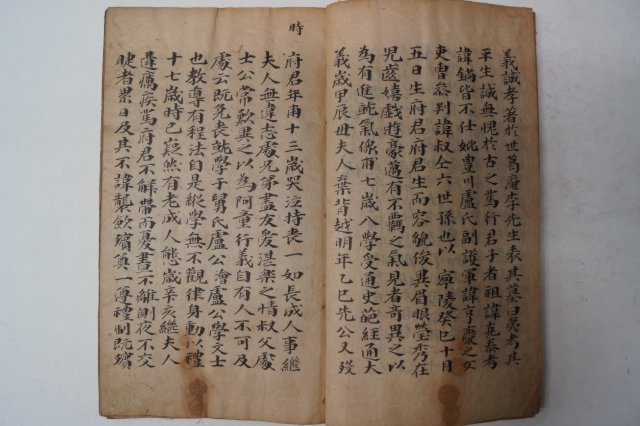 義誠孝著於世葛庵李先生表其墓曰夷考其
平生誠無愧於古之篤行君子者祖諱克泰考
諱鏑皆不仕妣豊川盧氏副護軍諱亨慶之女
吏曹叅判諱叔仝六世孫也以 寧陵癸巳十月
五日生府君府君生而容貌俊異眉眼瑩秀在
兒齒嬉戲遊豪邁有不羈之氣見者奇異之以
為有進就氣像甫七歲入學受通史葩經通大
義歲甲辰丗夫人棄背越明年乙巳先公又歿
時
府君年甫十三歲哭泣持喪一如長成人事繼
夫人無違志處兄弟盡友愛湛樂之情叔父處
士公常歎之以為阿童行義自有人不可及
處云既免喪就學于舅氏盧公澮盧公學文士
也教導有程法自是縱學無不觀律身動以禮
十七歲時已嶷然有老成人態歲辛亥繼夫人
遘癘疾篤府君不解帶而憂晝不離側夜不交
睫者累日及其不諱襲歛殯奠一尊禮制既殯